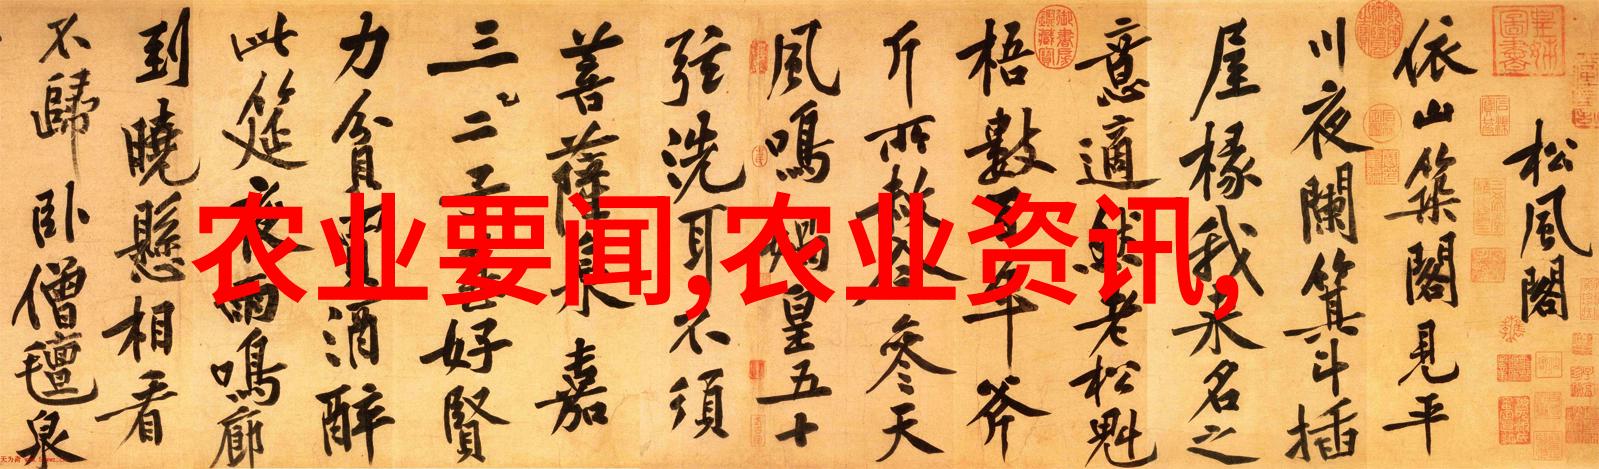 松風閣
依山築閣見平
川夜闌箕斗插
屋椽我来名之
意適然老松魁
梧數百年斧
斤所赦今参天
風鳴媧皇五十
弦洗耳不須
菩薩泉嘉
三二子甚好賢
力貧買酒醉
此筵夜雨鳴廊
到曉懸相看
不歸卧僧氊泉
农业要闻,农业资讯,